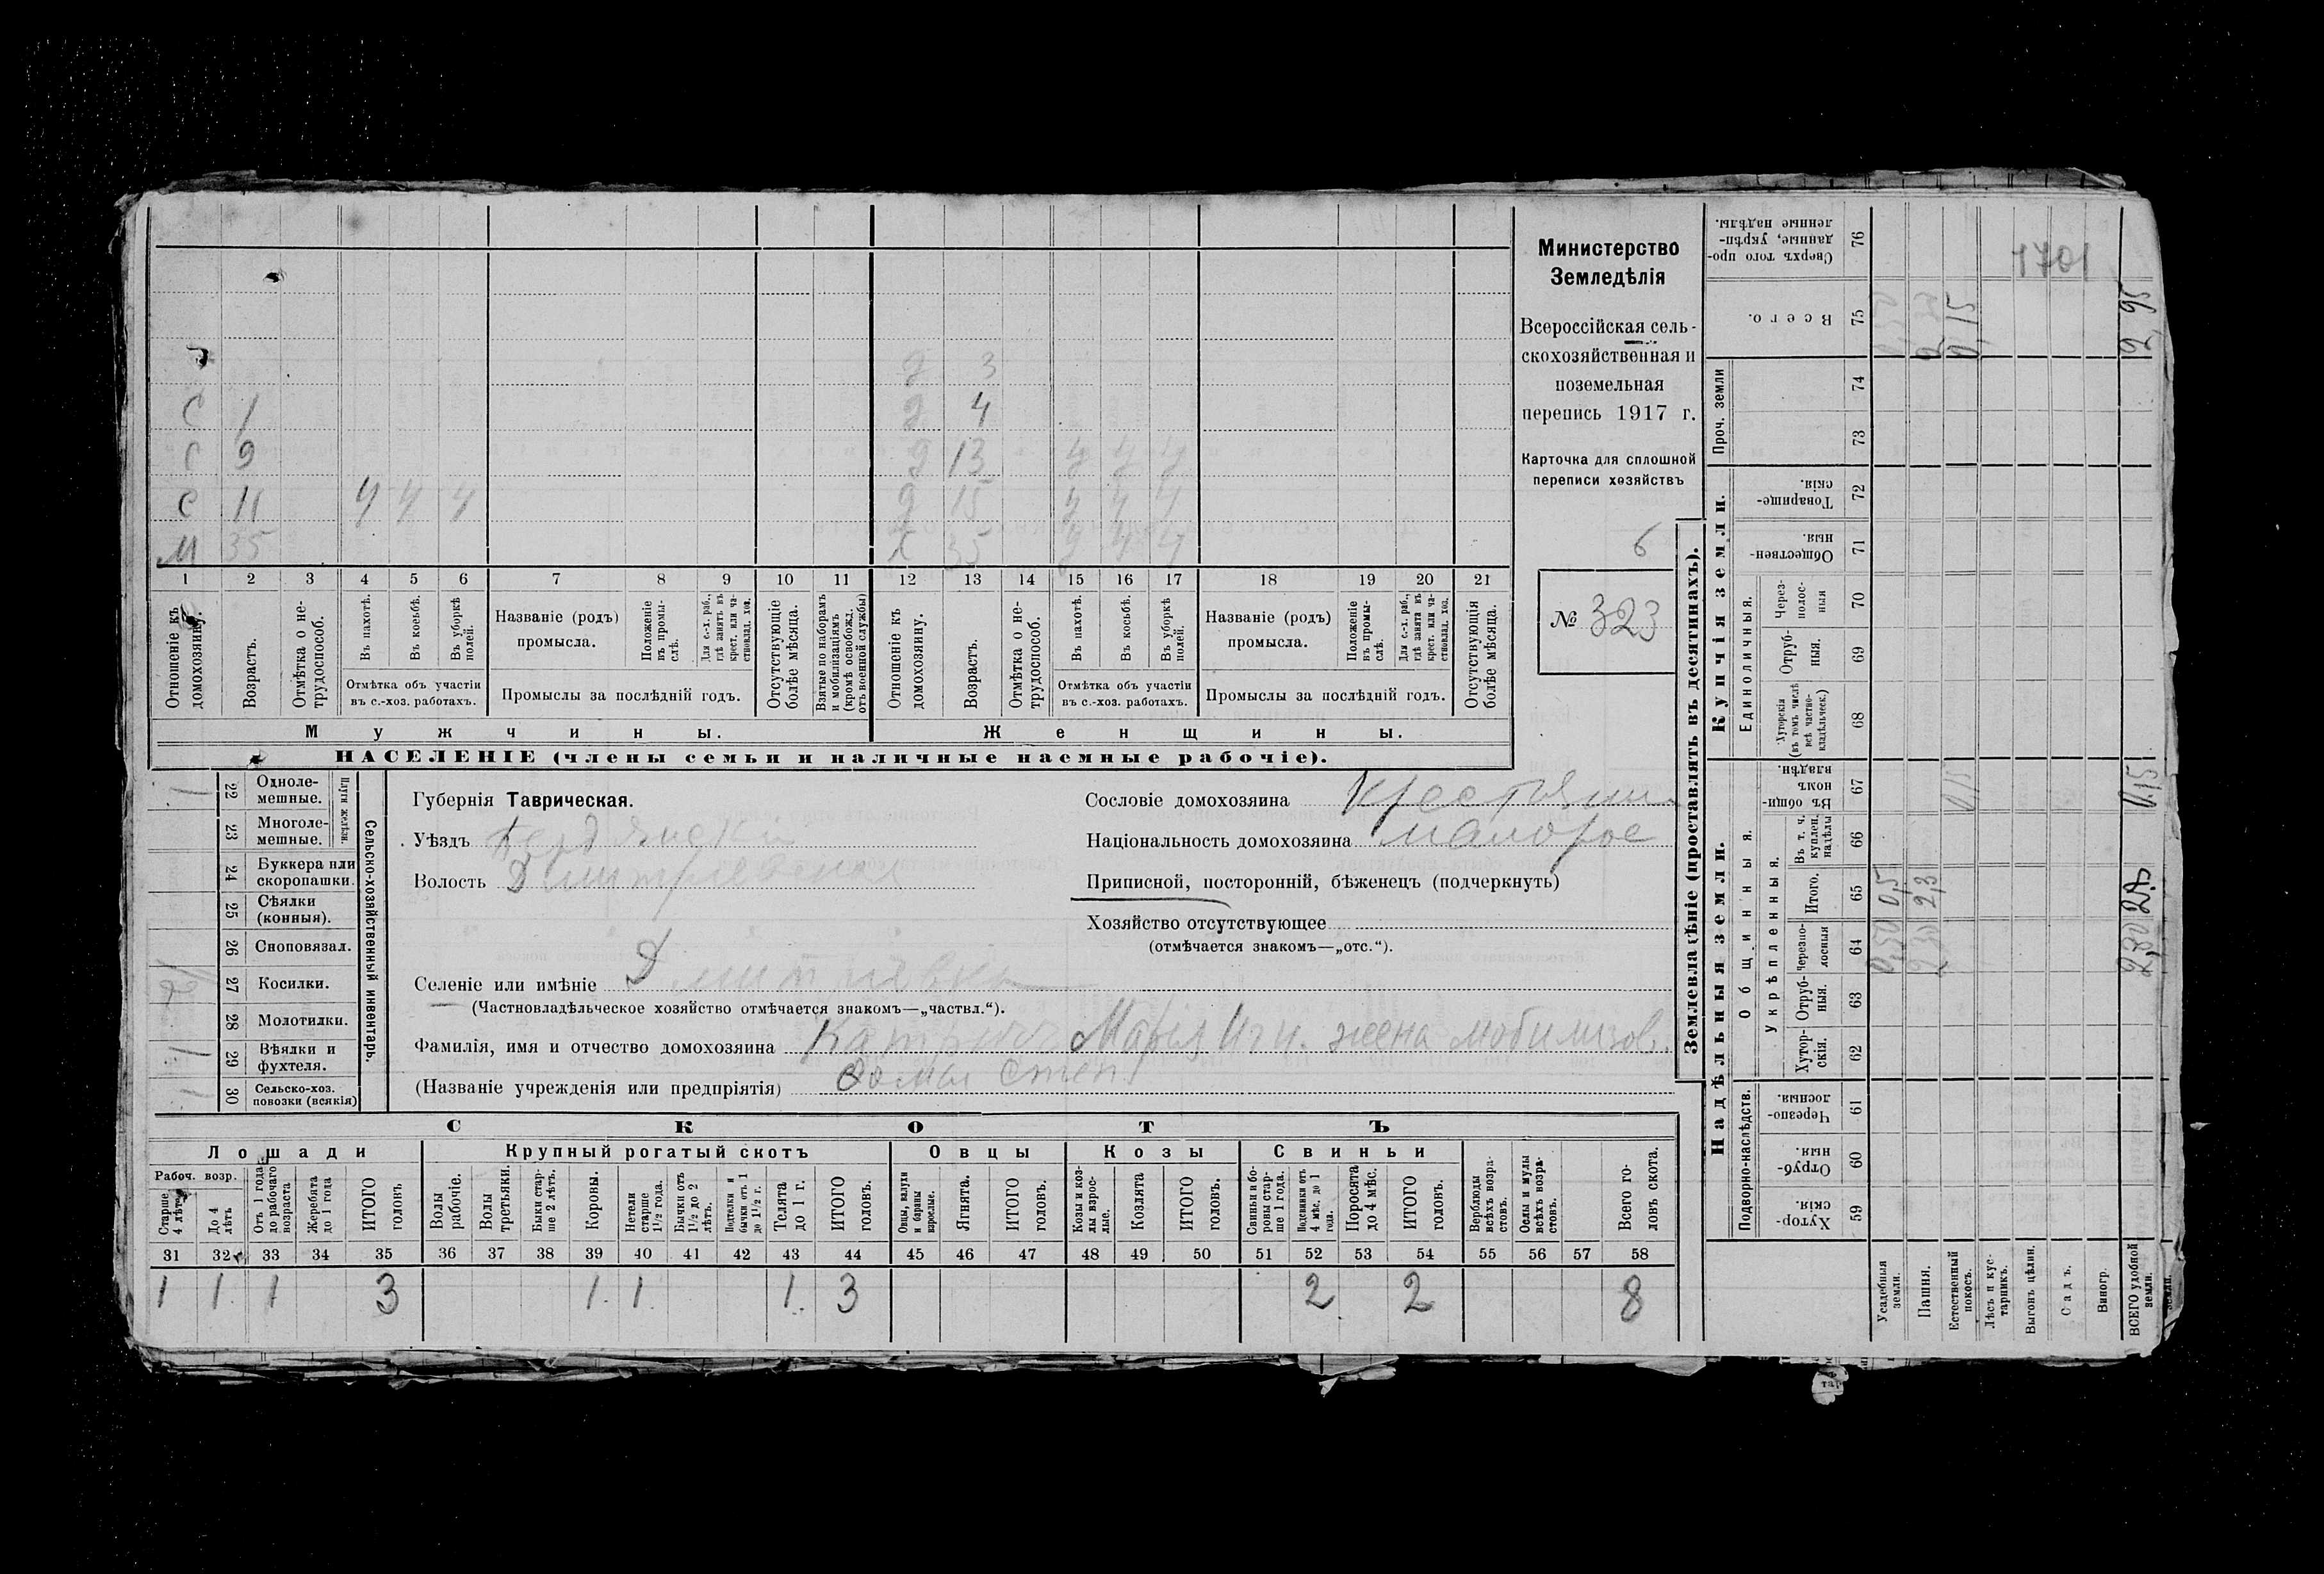 Министерство
Земледѣлія
Всероссійская сель-
скохозяйственная и
поземельная
перепись 1917 г.
Карточка для сплошной
переписи хозяйствъ
6
№ 323
1701
д 3
С 1 д 4
С 9 д 13 ч ч ч
С 11 ч ч ч д 15 ч ч ч
М 35 Х 35 ч ч ч
1 2 3 4 5 6 7 8 9 10 11 12 13 14 15 16 17 18 19 20 21
Отношеніе къ домохозяину.
Возрастъ.
Отмѣтка о не-трудоспособ.
Въ пахотѣ.
Въ косьбѣ.
Въ уборкѣ полей.
Отмѣтка объ участіи
въ с.-хоз. работахъ.
Названіе (родъ)
промысла.
Положеніе въ промы-слѣ.
Для с.-х. раб., гдѣ занятъ въ крест. или ча-стновлад. хоз.
Промыслы за послѣдній годъ.
Отсутствующіе болѣе мѣсяца.
Взятые по наборамъ и мобилизаціямъ (кромѣ освобожд. отъ военной службы)
Отношеніе къ домохозяину.
Возрастъ.
Отмѣтка о не-трудоспособ.
Въ пахотѣ.
Въ косьбѣ.
Въ уборкѣ полей.
Отмѣтка объ участіи
въ с.-хоз. работахъ.
Названіе (родъ)
промысла.
Положеніе въ промы-слѣ.
Для с.-х. раб., гдѣ занята въ крест. или ча-стновлад. хоз.
Промыслы за послѣдній годъ.
Отсутствующія болѣе мѣсяца.
Мужчины. Женщины.
НАСЕЛЕНІЕ (члены семьи и наличные наемные рабочіе).
Сельско-хозяйственный инвентарь.
Плуги желѣзн.
22 Одноле-мешные. 1
23 Многоле-мешные.
24 Буккера или скоропашки.
25 Сѣялки (конныя).
26 Сноповязал.
27 Косилки.
28 Молотилки.
29 Вѣялки и фухтеля. 1
30 Сельско-хоз. повозки (всякія) 1
Губернія Таврическая.
Уѣздъ Бердянскій
Волость Дмитріевская
Селеніе или имѣніе Дмитріевка
(Частновладѣльческое хозяйство отмѣчается знакомъ—„частвл.“).
Фамилія, имя и отчество домохозяина Марія Игн. жена мобилизов.
(Названіе учрежденія или предпріятія) Фомы Степ
Сословіе домохозяина Крестьянин
Національность домохозяина малорос
Приписной, посторонній, бѣженецъ (подчеркнуть)
Хозяйство отсутствующее
(отмѣчается знакомъ—„отс.“).
СКОТЪ
Лошади Крупный рогатый скотъ Овцы Козы Свиньи
Рабоч. возр.
Старше 4 лѣтъ
До 4 лѣтъ
Отъ 1 года до рабочаго возраста
Жеребята до 1 года
ИТОГО головъ
Волы рабочіе.
Волы третьяки.
Быки стар-ше 2 лѣтъ.
Коровы.
Нетели старше 1½ года.
Бычки отъ 1½ до 2 лѣтъ.
Подтелки и бычки отъ 1 до 1½ г.
Телята до 1 г.
ИТОГО головъ.
Овцы, валухи и бараны взрослые.
Ягнята.
ИТОГО головъ.
Козы и коз-лы взрос-лые.
Козлята
ИТОГО головъ.
Свиньи и бо-ровы стар-ше 1 года.
Подсвинки отъ 4 мѣс. до 1 года.
Поросята до 4 мѣс.
ИТОГО головъ.
Верблюды всѣхъ возра-стовъ.
Ослы и мулы всѣхъ возра-стовъ.
Всего го-ловъ скота.
31 32 33 34 35 36 37 38 39 40 41 42 43 44 45 46 47 48 49 50 51 52 53 54 55 56 57 58
1 1 1 3 1. 1. 1. 3 2 2 8
Землевладѣніе (проставлять въ десятинахъ).
Купчія земли.
Надѣльныя земли.
Сверхъ того про-данные, укрѣп-ленные надѣлы. 76
Всего. 75 2,95
0,15
Проч. земли 74 73
Товарище-скія. 72
Обществен-ныя. 71
Единоличныя.
Через-полос-ныя 70
Отруб-ныя. 69
Хуторскія (въ томъ числѣ всѣ частно-владѣльческ.) 68
Общинныя.
Въ общи-номъ владѣн. 67 0,15 0,15
Укрѣпленныя.
Въ т. ч. куплен. надѣлы 66
Итого. 65 0,5 2,3
Черезпо-лосныя 64 0,50 2,30 2,80
Отруб-ныя. 63
Хутор-скія. 62
Подворно-наслѣдств.
Черезпо-лосныя 61
Отруб-ныя. 60
Хутор-скія. 59
Усадебныя земли.
Пашня.
Естественный покосъ.
Лѣсъ и кус-тарникъ.
Выгонъ цѣлин.
Садъ.
Виногр.
ВСЕГО удобной земли.